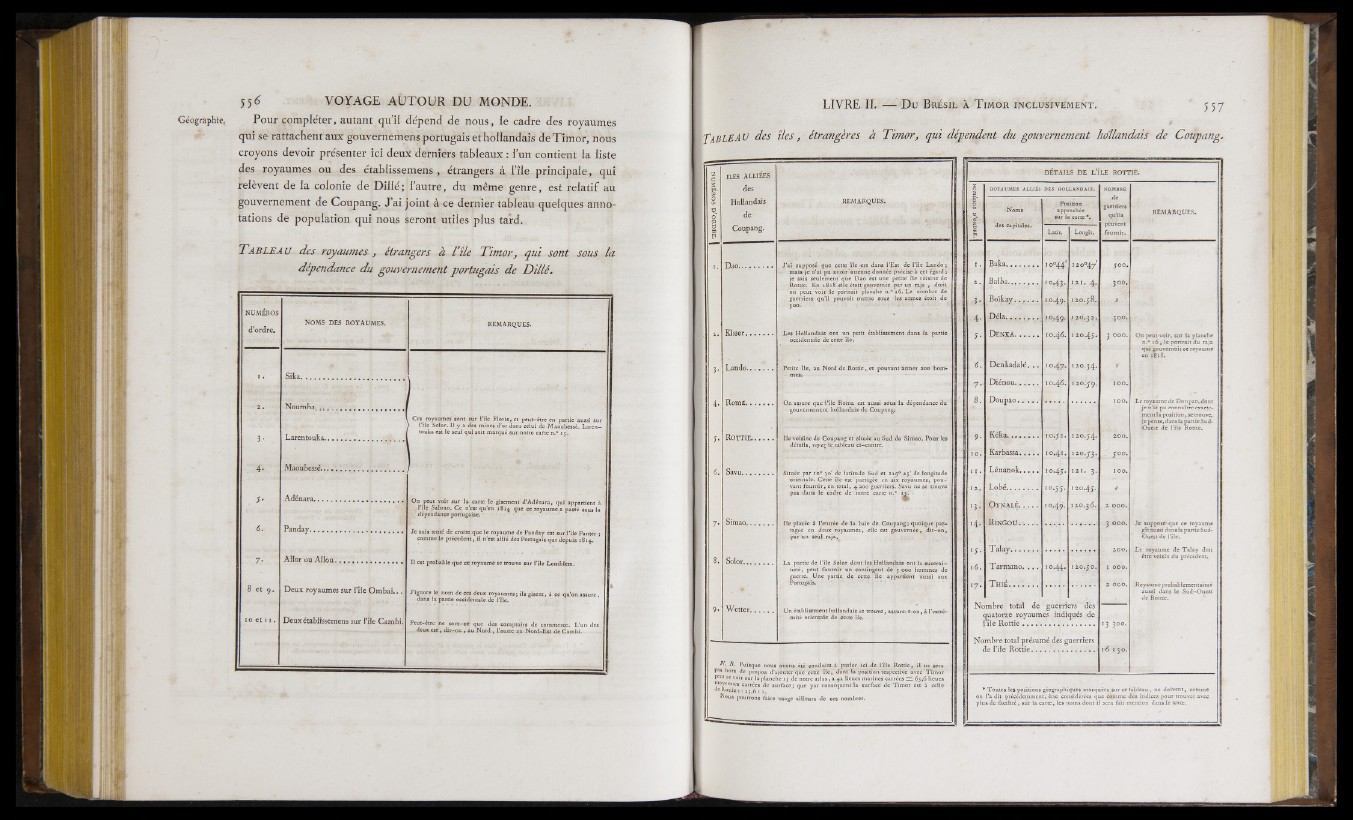 556 VOYAGE AUTOUR DU MONDE.
Géographie.
Pour compléter, autant qu'il dépend de nous, le cadre des royaumes
qui se rattachent aux gouvernemens portugais et hollandais de Timor, nous
croyons devoir présenter ici deux derniers tableaux : l'un contient la liste
des royaumes ou des établissemens, étrangers à l'île principale, qui
relèvent de la colonie de Dillé; l'autre, du même genre, est relatif au
gouvernement de Coupang. J'ai joint à ce dernier tableau quelques anno-
tations de population qui nous seront utiles plus tard.
TABLEAU des royaumes, étrangers à l'île Timor, qui sont sous la
dépendance du gouvernement portugais de Dillé.
NUMÉROS
d'ordre.
NOMS DES ROYAUMES.
REMARQUES.
1. Sika
2. Noumba
3. Larentouka
4. Maoubessé
Ces royaumes sont sur l'île Florie, et peut-être en partie aussi sur
l'île Solor. Il y a des mines d'or dans celui de Maoubessé. Laren-
touka est le seul qui soit marqué sur notre carte n.° 15.
5. Adénara
On peut voir sur la carte le gisement d'Adénara, qui appartient à
l'île Sabrao. Ce n'est qu'en 1814 que ce royaume a passé sous la
dépendance portugaise.
6. Panday
Je suis tenté de croire que le royaume de Panday est sur l'île Panter;
comme le précédent, il n'est allié des Portugais que depuis 1814.
7. Allor ou Allou
Il est probable que ce royaume se trouve sur l'île Lombien.
8 et 9. Deux royaumes sur l'île Ombai...
J'ignore le nom de ces deux royaumes; ils gisent, à ce qu'on assure,
dans la partie occidentale de l'île.
10 et 11. Deux établissemens sur l'île Cambi.
Peut-être ne sont-ce que des comptoirs de commerce. L'un des
deux est, dit-on, au Nord, l'autre au Nord-Est de Cambi.
LIVRE II. — DU BRÉSIL À TIMOR INCLUSIVEMENT. 557
TABLEAU des îles, étrangères à Timor, qui dépendent du gouvernement hollandais de Coupang.
NUMÉROS D'ORDRE
ILES ALLIÉES
des
Hollandais
de
Coupang.
REMARQUES.
1. Dao
J'ai supposé que cette île est dans l'Est de l'île Lando;
mais je n'ai pu avoir aucune donnée précise à cet égard;
je sais seulement que Dao est une petite île voisine de
Rottie. En 1818 elle était gouvernée par un raja, dont
on peut voir le portrait planche n.° 16. Le nombre de
guerriers qu'il pouvoit mettre sous les armes étoit de
300.
2. Kisser
Les Hollandais ont un petit établissement dans la partie
occidentale de cette île.
3. Lando
Petite île, au Nord de Rottie, et pouvant armer 200 hom-
mes.
4. Roma
On assure que l'île Roma est aussi sous la dépendance du
gouvernement hollandais de Coupang.
5. ROTTIE
Ile voisine de Coupang et située au Sud de Simao. Pour les
détails, voyez le tableau ci-contre.
6. Savu
Située par 10° 30' de latitude Sud et 119° 25' de longitude
orientale. Cette île est partagée en six royaumes, pou-
vant fournir, en total, 4 200 guerriers. Savu ne se trouve
pas dans le cadre de notre carte n.° 15.
7. Simao
Ile placée à l'entrée de la baie de Coupang; quoique par-
tagée en deux royaumes, elle est gouvernée, dit-on,
par un seul raja.
8. Solor
La partie de l'île Solor dont les Hollandais ont la souverai-
neté, peut fournir un contingent de 5 000 hommes de
guerre. Une partie de cette île appartient aussi aux
Portugais.
9. Wetter
Un établissement hollandais se trouve, assure-t-on, à l'extré-
mité orientale de cette île.
N. B. Puisque nous avons été conduits à parler ici de l'île Rottie, il ne sera
pas hors de propos d'ajouter que cette île, dont la position respective avec Timor
peut se voir sur la planche 15 de notre atlas, a 42 lieues marines carrées = 65,6 lieues
moyennes carrées de surface; que par conséquent la surface de Timor est à celle
de Rottie :: 25,6 : 1.
Nous pourrons faire usage ailleurs de ces nombres.
DÉTAILS DE L'ÎLE ROTTIE.
NUMÉROS D'ORDRE
ROYAUMES ALLIÉS DES HOLLANDAIS.
Noms
des capitales.
Position
approchée
sur la carte *.
Latit. Longit.
NOMBRE
de
guerriers
qu'ils
peuvent
fournir.
REMARQUES.
1. Baka 10°44' 120°47' 500.
2. Balba 10.43. 121. 4. 300.
3. Boïkay 10.49. 120.58. "
4. Déla 10.49. 120.32. 500.
5. DENKA 10.46. 120.45. 3 000. On peut voir, sur la planche
n.° 16, le portrait du raja
qui gouvernoit ce royaume
en 1818.
6. Denkadalé 10.47. 120.34. "
7. Diénou 10.46. 120.59. 100.
8. Doupao 100. Le royaume de Doupao, dont
je n'ai pu connoître exacte-
ment la position, se trouve,
je pense, dans la partie Sud-
Ouest de l'île Rottie.
9. Kélia 10.51. 120.54. 200.
10. Karbassa 10.41. 120.53. 500.
11. Lénanok 10.45. 121. 3. 100.
12. Lobé 10.55. 120.45. "
13. OYNALÉ 10.49. 120.36. 2 000.
14. RINGOU 3 000. Je suppose que ce royaume
gît aussi dans la partie Sud-
Ouest de l'île.
15. Talay 200. Le royaume de Talay doit
être voisin du précédent.
16. Tarmano 10.44. 120.50. 1 000.
17. THIÉ 2 000. Royaume probablement situé
aussi dans le Sud-Ouest
de Rottie.
Nombre total de guerriers des
quatorze royaumes indiqués de
l'île Rottie 13 300.
Nombre total présumé des guerriers
de l'île Rottie 16 150.
* Toutes les positions géographiques marquées sur ce tableau, ne doivent, comme
on l'a dit précédemment, être considérées que comme des indices pour trouver avec
plus de facilité, sur la carte, les noms dont il sera fait mention dans le texte.